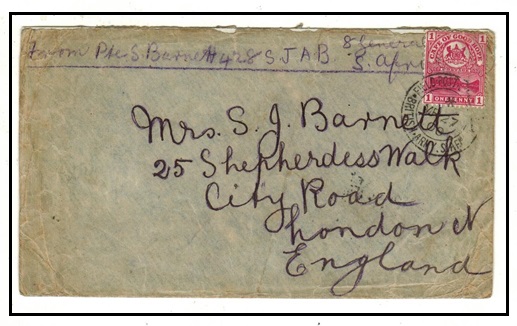 From Pte S. Barnett 428 S J A B. 8 General
S. Afri
1 CAPE OF GOOD HOPE 1
1 ONE PENNY 1
FIELD POST
BRITISH ARMY S.
Mrs. S. J. Barnett
25 Shepherdess Walk
City Road
London N
England